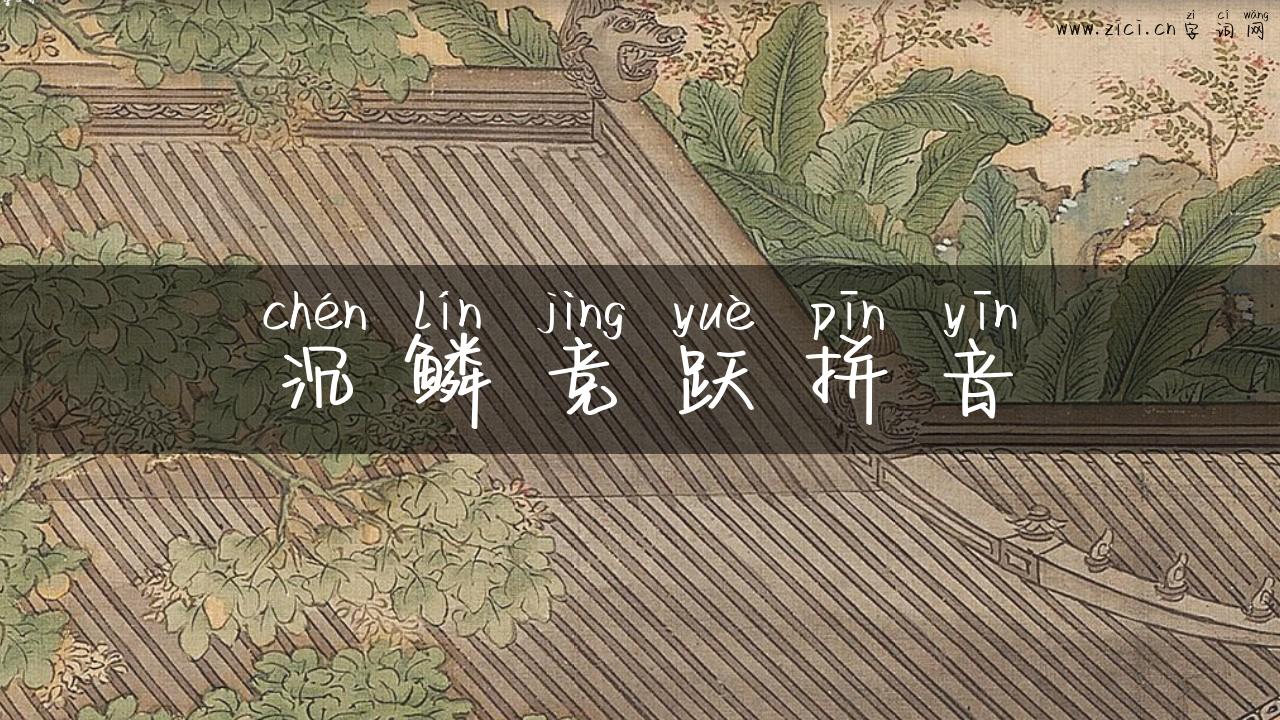 zì cí wǎng
www.zici.cn 字词网
chén lín jìng yuè pīn yīn
沉鳞竞跃拼音